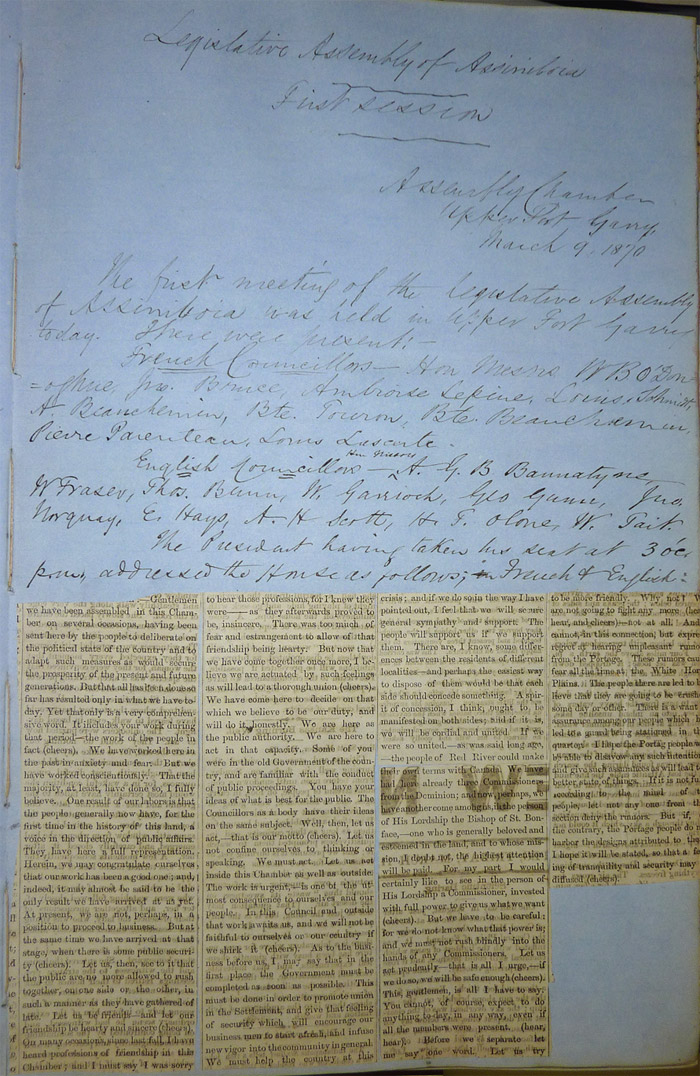 Legislative Assembly of Assiniboia
First session
Assembly Chamber
Upper Fort Garry,
March 9, 1870
The first meeting of the Legislative Assembly
of Assiniboia was held in Upper Fort Garry
today. There were present:-
French Councillors - Hon Messrs W B O'Don-
=oghue, Jno. Bruce, Ambroise Lepine, Louis Schmidt
A. Beauchemin, Bte. Touron, Bte. Beauchemin,
Pierre Parenteau, Louis Lascerte.
Hon Messrs
English Councillors - A. G. B Bannatyne,
W Fraser, Thos. Bunn, W. Garrioch, Geo Gunn, Jno.
Norquay, E. Hays, A. H Scott, H. F. Olone, W. Tait.
The President having taken his seat at 3 oc.
p.m., addressed the House as follows; in French & English:
Gentlemen
we have been assembled, in this Cham-
ber on several occasions, having been
sent here by the people to deliberate on
the political state of the country and to
adapt such measures as would secure
the prosperity of the present and future
generations. But that all has been done so
far has resulted only in what we have to-
day. Yet that only is a very comprehen-
sive word. It includes your work during
that period—the work of the people in
fact (cheers). We have worked here in
the past in anxiety and fear. But we
have worked conscientiously. That the
majority, at least, have done so, I fully
believe. One result of our labors is that
the people generally now have, for the
first time in the history of this land, a
voice in the direction of public affairs.
They have here a full representation.
Herein, we may congratulate ourselves
that our work has been a good one; and,
indeed, it may almost be said to be the
only result we have arrived at as yet.
At present, we are not, perhaps, in a
position to proceed to business. But at
the same time we have arrived at that
stage, when there is some public securi-
ty (cheers). Let us, then, see to it that
the public are no more allowed to rush
together, on one side or the other, in
such a manner as they have gathered of
late. Let us be friends—and let our
friendship be hearty and sincere (cheers).
On many occasions, since last fall, I have
heard professions of friendship in this
Chamber; and I must say I was sorry
to hear those professions, for I knew they
were—— as they afterwards proved to
be, insincere. There was too much of
fear and estrangement to allow of that
friendship being hearty. But now that
we have come together once more, I be-
lieve we are actuated by such feelings
as will lead to a thorough union (cheers).
We have come here to decide on that
which we believe to be our duty, and
will do it honestly. We are here as
the public authority. We are here to
act in that capacity. Some of you
were in the old Government of the coun-
try, and are familiar with the conduct
of public proceedings. You have your
ideas of what is best for the public. The
Councillors as a body have their ideas
on the same subject. Well, then, let us
act,—that is our motto (cheers). Let us
not confine ourselves to thinking or
speaking. We must act. Let us act
inside this Chamber as well as outside
The work is urgent,—is one of the ut-
most consequence to ourselves and our
people. In this Council and outside
that work awaits us, and we will not be
faithful to ourselves or our country if
we shirk it (cheers). As to the busi-
ness before us, I may say that in the
first place, the Government must be
completed as soon as possible. This
must be done in order to promote union
in the Settlement, and give that feeling
of security which will encourage our
business men to start afresh, and infuse
new vigor into the community in general
We must help the country at this
crisis; and if we do so in the way I have
pointed out, I feel that we will secure
general sympathy and support. The
people will support us if we support
them. There are, I know, some differ-
ences between the residents of different
localities—and perhaps the easiest way
to dispose of them would be that each
side should concede something. A spir-
it of concession, I think, ought to be
manifested on both sides; and if it is,
we will be cordial and united. If we
were so united—as was said long ago,
—the people of Red River could make
their terms with Canada. We have
had here already three Commissioners
from Dominion; and now, perhaps, we
have another come amongst us in the person
of His Lordship the Bishop of St. Bon-
face,—one who is generally beloved and
esteemed in the land, and to whose mis-
sion, I doubt not, the highest attention
will be paid. For my part I would
certainly like to see in the person of
His Lordship a Commissioner, invested
with full power to give us what we want
(cheers). But we have to be careful;
for we do not know what that power is;
and we must not rush blindly into the
hands of any Commissioners. Let us
act prudently—that is all I urge,—if
we do so, we will be safe enough (cheers).
This, gentlemen, is all I have to say.
You cannot, of course, expect to do
anything to-day, in any way, even if
all the members were present. (hear,
hear). Before we separate let
me say one word. Let us try
to be more friendly. Why not? We
are not going to fight any more. (
hear, and cheers)—not at all. And I
cannot, in this connection, but express
regret at hearing unpleasant rumors
from the Portage. These rumors cause
fear all the time at the White Horse
Plains. The people there are led to be-
lieve that they are going to be crushed
some day or other. There is a want of
assurance among our people which has
led to a guard being stationed in that
quarter. I hope the Portage people will
be able to disavow any such intention
and give such assurances as will lead to a
better state of things. If it is not in
according to the mind of the
people, let not any one from that
section deny the rumors. But if, on
the contrary, the Portage people do not
harbor the designs attributed to them
I hope it will be stated, so that a feel-
ing of tranquility and security may be
diffused (cheers).